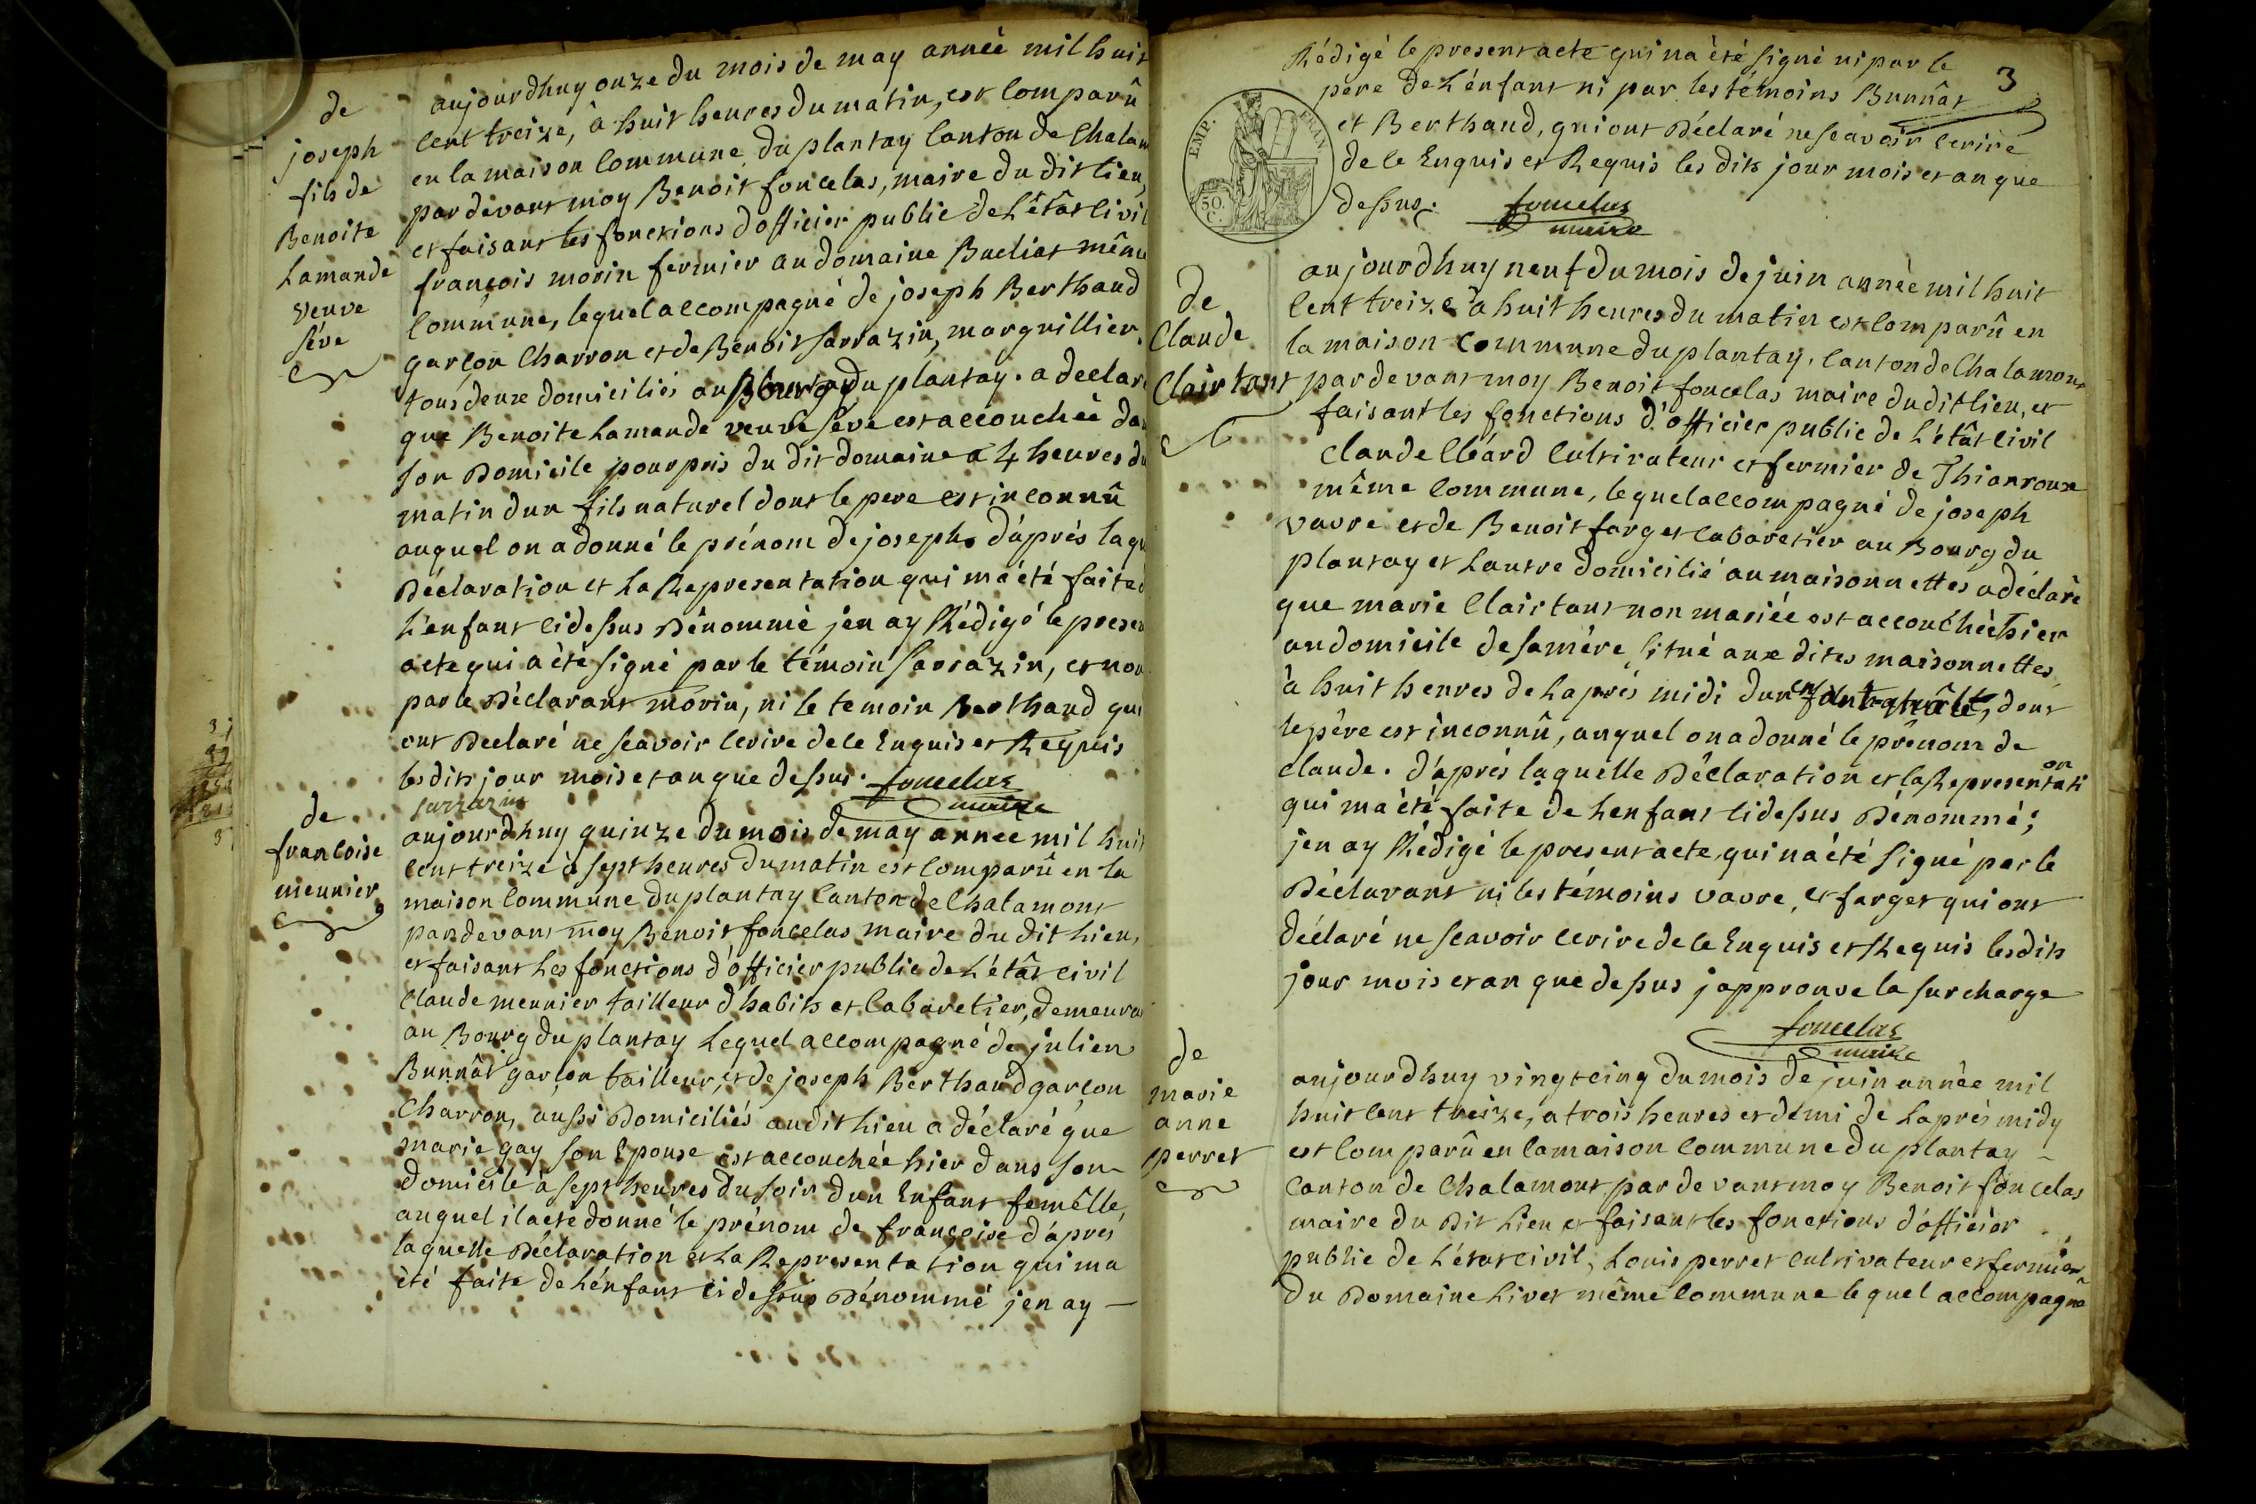 de
joseph
fils de
Benoite
Lamande
veuve
séve
aujourdhuy onze du mois de may année mil huit
cent treize, à huit heures du matin, est comparû
en la maison commune du plantay canton de Chalam
par devant moy Benoit foncelas, maire du dit lieu,
et faisant les fonctions dofficier public de L'êtât civil
françois morin fermier au domaine Bueliat même
commune, lequel accompagné de joseph Berthaud
garçon Charron et de Benoit sarrazin, marguillier,
tous deux domiciliés au Bourg du plantay. a declar
que Benoite Lamande veuve séve est accouchée da
son Domicile pourpris du dit domaine a 4 heures du
matin dun fils naturel dont le pere est inconnû
auquel on a donné le prénom de joseph. d'après laqu
Déclaration et La Representation qui ma été faite d
L'enfant cidessus Dénommé jen ay Rédigé le presen
acte qui a été signé par le témoin sarrazin, et non
par le Déclarant morin, ni le temoin Berthaud qui
ont Declaré ne scavoir ecrire de ce Enquis et Requis
les dits jour mois et an que dessus. foncelas
sarrazin maire
de
francoise
meunier
aujourdhuy quinze du mois de may annee mil huit
cent treize à sept heures du matin est comparû en la
maison commune du plantay Canton de Chalamont
pardevant moy Benoit foncelas maire du dit Lieu,
et faisant Les fonctions d'officier public de L'êtât civil
Claude meunier tailleur d'habits et Cabaretier, demeura
au Bourg du plantay Lequel accompagné de julien
Bunnât garçon tailleur, et de joseph Berthaud garçon
Charron, aussi Domiciliés audit Lieu a déclaré que
marie gay son Epouse est accouchée hier dans son
domicile à sept heures du soir dun Enfant femêlle,
auquel il a eté donné le prénom de françoise d'après
laquelle Déclaration et La Representation qui ma
été faite de Lénfant cidessus Dénommé jen ay
3
Rédigé le present acte qui na été signé ni par le
pere de Lénfant ni par les témoins Bunnât
et Berthaud, qui ont Déclaré ne scavoir ecrire
de ce Enquis et Requis les dits jour mois et an que
dessus. foncelas
maire
EMP. FRAN
50
C.
de
Claude
Clairtant
aujourdhuy neuf du mois de juin année mil huit
cent treize à huit heures du matin est comparû en
la maison commune du plantay, canton de Chalamont
pardevant moy Benoit foncelas maire dudit lieu, et
faisant les fonctions d'officier public de L'êtât civil
Claude Cléard Cultivateur et fermier de Thianroux
même commune, lequel accompagné de joseph
vavre et de Benoit farget cabaretier au Bourg du
plantay et Lautre domicilié au maisonnettes a déclaré
que marie Clairtant non mariée est accouchée hier
au domicile de sa mére, situé aux dites maisonnettes,
à huit heures de Laprés midi dun enfant mâle, dont
le pére est inconnû, auquel on a donné le prénom de
claude. d'aprés laquelle Déclaration et la Representati on
qui ma été faite de Lenfant cidessus Dénommé;
jen ay Rédigé le present acte, qui na été signé par le
Déclarant ni les témoins vavre, et farget qui ont
déclaré ne scavoir ecrire de ce Enquis et Requis les dits
jour mois et an que dessus japprouve la surcharge
foncelas
maire
de
marie
anne
perret
aujourdhuy vingt cinq du mois de juin année mil
huit cent treize, a trois heures et demi de Laprès midy
est comparû en la maison commune du plantay
Canton de Chalamont, par devant moy Benoit foncelas
maire du Dit Lieu et faisant les fonctions d'officier
public de L'état civil, Louis perret cultivateur et fermier
du Domaine Livet même commune lequel accompagné